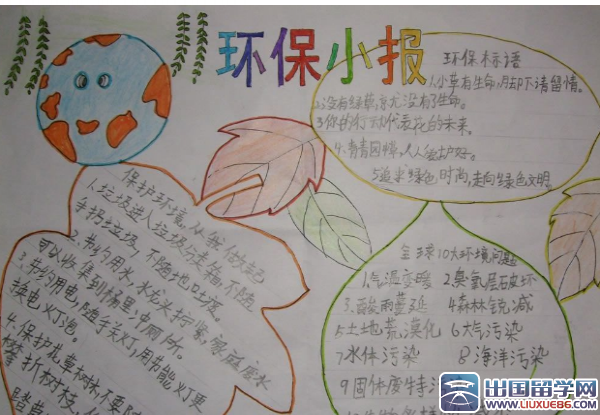 环保小报
环保标语
1.小草有生命,脚下请留情。
2.没有绿草,就没有了生命。
3.你的行动代表花的未来。
4.青青园惮,人人爱护好。
5.追求绿色时尚,走向绿色文明。
保护环境,从我做起
1.垃圾进入垃圾分类箱,不随
手扔垃圾,不随地吐痰。
2.节约用水,水龙头拧紧,家庭废水
可以收集到桶里冲厕所。
3.节约用电,随手关灯,用节能灯更
换电灯泡。
4.保护花草树木不要
攀折树枝
踏草
全球10大环境问题
1.气温变暖 2臭氧层破坏
3.酸雨蔓延 4森林锐减
5土地荒漠化 6大气污染
7水体污染 8海洋污染
9固体废特
出国留学网
WWW.LIUXUE86.COM